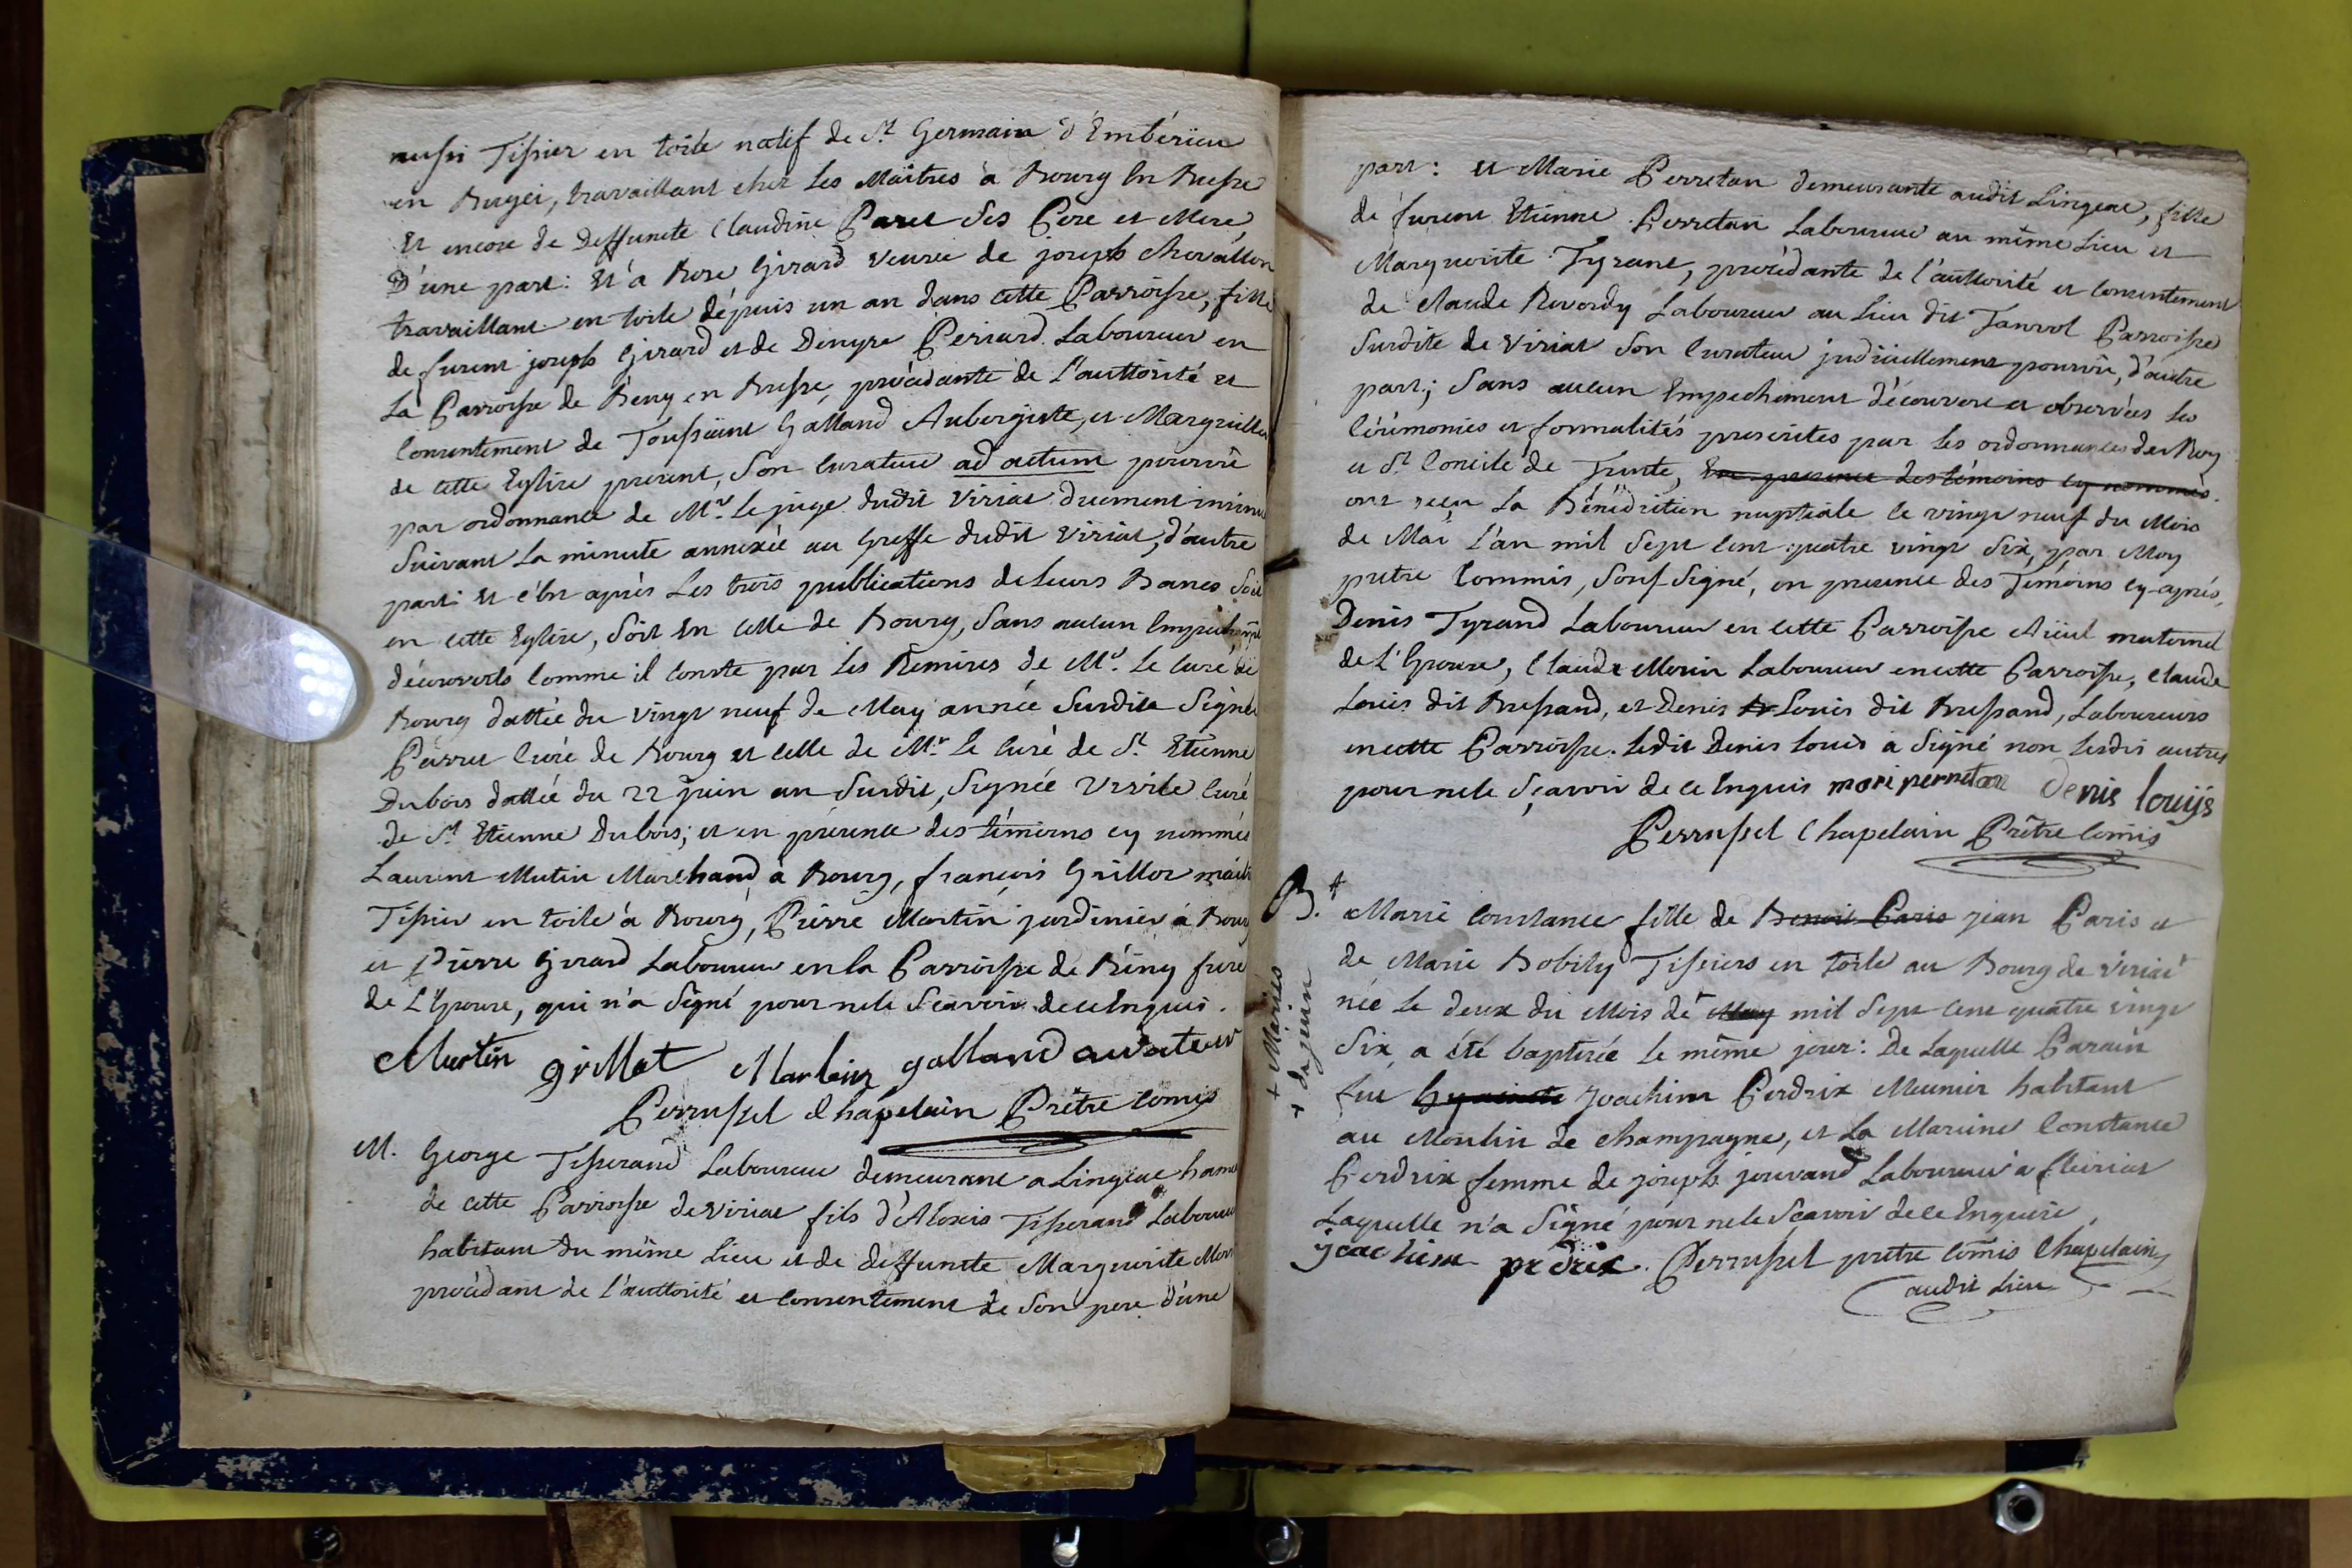 aussi Tissier en toile natif de St. Germain d'Embérieu
en Bugei, travaillant chez les Maitres à Bourg En Bresse
Et encore de Deffuncte Claudine Paret ses Pere et Mere,
D'une part: Et à Rose Girard veuve de joseph chevallon
travaillant en toile dépuis un an dans cette Parroisse, fille
de furent joseph Girard et de Denyse Perrard Laboureur en
La Parroisse de Reny en Bresse, procèdante de L'authorité et
Consentement de Toussaint Galland Aubergiste, et Marguillier
de cette Eglise present, son curateur ad actum pourvû
par ordonnance de Mr. le juge dudit Viriat duement insinué
Suivant la minute annexée au Greffe dudit Viriat, d'autre
part: Et c'est après Les trois publications de leurs Bancs soit
en cette Eglise, soit En celle de Bourg, sans aucun Empechement
découverts comme il conste par les Remises de Mr. le curé de
Bourg dattée du vingt neuf de May année susdite Signée
Perret Curé de Bourg et celle de Mr. le curé de St. Etienne
Dubois dattée du 22 juin an susdit, Signée curé
de St Etienne Dubois; et en présence des témoins cy nommés
Laurent Mutin Marchand à Bourg, françois Grillot maitre
Tissier en toile à Bourg, Pierre Martin jardinier à Bourg
et Pierre Girard Laboureur en la Parroisse de Rény frere
de L'Epouse, qui n'a signé pour ne le sçavoir de ce Enquis.
Mutin grillot Martein galland curateur
Perrussel chapelain Prêtre Comis
M. George Tisserand Laboureur demeurant a Lingeat hameau
de cette Parroisse de Viriat fils d'Alexis Tisserand Laboureur
habitant du même Lieu et de deffuncte Marguerite
procèdant de l'authorité et consentement de son pere d'une
part: et Marie Perretan demeurante audit Lingeat, fille
de furent Etienne Perretan Laboureur au même Lieu et
Marguerite Tyrant, procèdante de l'authorité et consentement
de Claude Revordy Laboureur au Lieu dit Tanvol Parroisse
Surdite de Viriat son curateur judiciellement pourvû, d'autre
part; sans aucun Empechement découvert et observées les
Cérémonies et formalités prescrites par les ordonnances des Roy
et St Concile de Trente, En presence des témoins cy nommés
ont reçu la Bénédiction nuptiale le vingt neuf du Mois
de Mai l'an mil sept cent quatre vingt six, par Moy
prêtre Commis, soussigné, en presence des Témoins cy-après,
Denis Tyrand Laboureur en cette Parroisse Aïeul maternel
de L'Epouse, Claude Morin Laboureur en cette Parroisse, Claude
Louis dit Bressand, et Denis Louis dit Bressand, Laboureurs
en cette Parroisse. Ledit Denis Louis a signé non lesdis autres
pour ne le sçavoir de ce Enquis mari perretan denis louijs
Perrussel Chapelain Prêtre Comis
B. Marie Constance fille de Benoit Paris jean Paris et
de Marie Bobily Tissiers en toile au Bourg de Viriat
née le deux du Mois de May mil sept cent quatre vingt
six a été baptisée le même jour: De laquelle Parain
fut hyacinte Joachim Perdrix Meunier habitant
au Moulin de Champagne, et la Mareine Constance
Perdrix femme de joseph jouvand Laboureur a fleiriat
Laquelle n'a signé pour ne le sçavoir de ce Enquise,
joachim predrix. Perrussel prêtre comis Chapelain
audit Lieu
+ Mariées
+ de juin